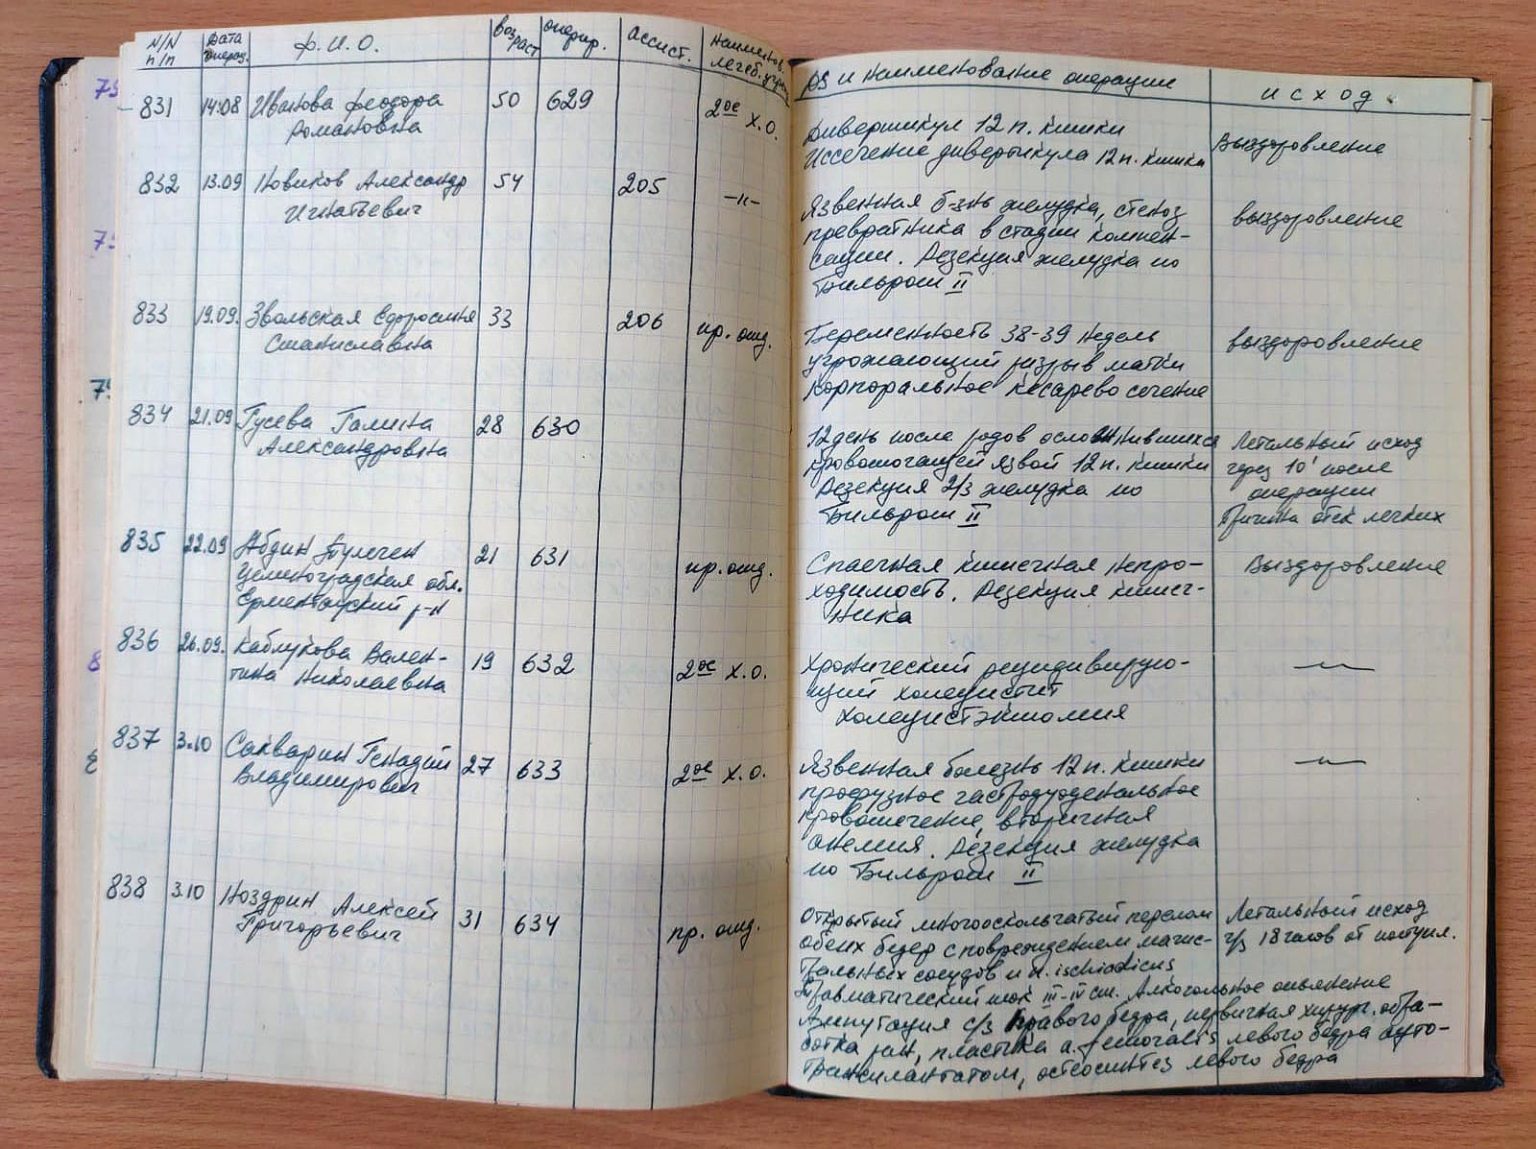 N/N п/п Дата операц. Ф.И.О. возраст опериr. ассист. наименов. лечеб. учр. DS и наименование операции исход.
831 14.08 Иванова Феодора 50 629 2ое х.о. Дивертикул 12 п. кишки Выздоровление
Романовна Иссечение дивертикула 12 п. кишки
832 13.09 Новиков Александр 54 205 –"– Язвенная б-знь желудка, стеноз выздоровление
Игнатьевич превратника в стадии компен-
сации. Резекция желудка по
Бильрот II
833 19.09. Звольская Ефросинья 33 206 пр. отд. Беременность 38-39 недель выздоровление
Станиславна угрожающий разрыв матки
корпоральное кесарево сечение
834 21.09 Гусева Галина 28 630 12 день после родов осложнившихся Летальный исход
Александровна кровоточащей язвой 12 п. кишки через 10' после
Резекция 2/3 желудка по операции
Бильрот II Причина отек легких
835 22.09 Абдин Тулеген 21 631 пр. отд. Спаечная кишечная непро- Выздоровление
Целиноградская обл. ходимость. Резекция кишеч-
Ерментауский р-н ника
836 26.09. Каблукова Вален- 19 632 2ое х.о. Хронический рецидивирую- –"–
тина Николаевна щий холецистит
холецистэктомия
837 3.10 Сакварин Генадий 27 633 2ое х.о. Язвенная болезнь 12 п. кишки –"–
Владимирович профузное гастродуоденальное
кровотечение, вторичная
анемия. Резекция желудка
по Бильрот II
838 3.10 Ноздрин Алексей 31 634 пр. отд. Открытый многооскольчатый перелом Летальный исход
Григорьевич обеих бедер с повреждением магис- ч/з 18 часов от поступл.
тральных сосудов и n. ischiadicus
Травматический шок III-IV ст. Алкогольное опьянение
Ампутация с/з правого бедра, первичная хирург. обра-
ботка ран, пластика a. femoralis левого бедра ауто-
трансплантатом, остеосинтез левого бедра